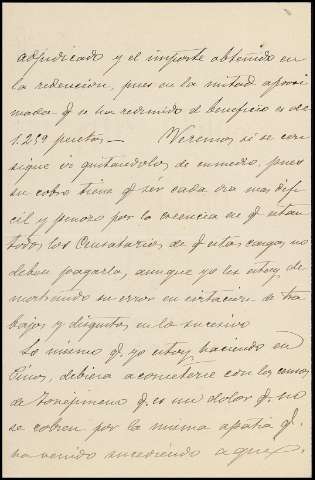 adjudicado y el importe obtenido en
la redencion, pues en la mitad aproxi
mada q. se ha redimido el beneficio es de
1.239 pesetas — Veremos si se con
sigue ir quitandolos de enmedio, pues
su cobro tiene q. ser cada vez mas difi
cil y penoso por la creencia en q. estan
todos los Censatarios de q. estas cargas no
deben pagarla, aunque yo les estoy de
mostrando su error en evitacion de tra
bajos y disgustos en lo sucesivo
Lo mismo q. yo estoy haciendo en
debiera acometerse con los censos
de q. es un dolor q. no
se cobren por la misma apatia q.
ha venido sucediendo aqui.